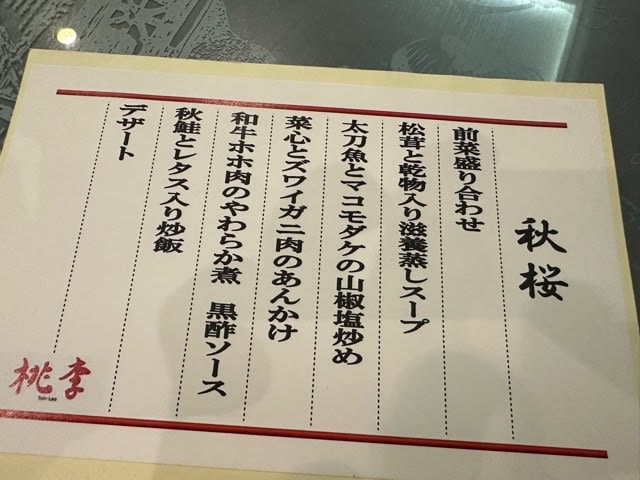 秋桜
前菜盛り合わせ
松茸と乾物入り滋養蒸しスープ
太刀魚とマコモダケの山椒塩炒め
菜心とズワイガニ肉のあんかけ
和牛ホホ肉のやわらか煮　黒酢ソース
秋鮭とレタス入り炒飯
デザート
桃李
Toh-Lee